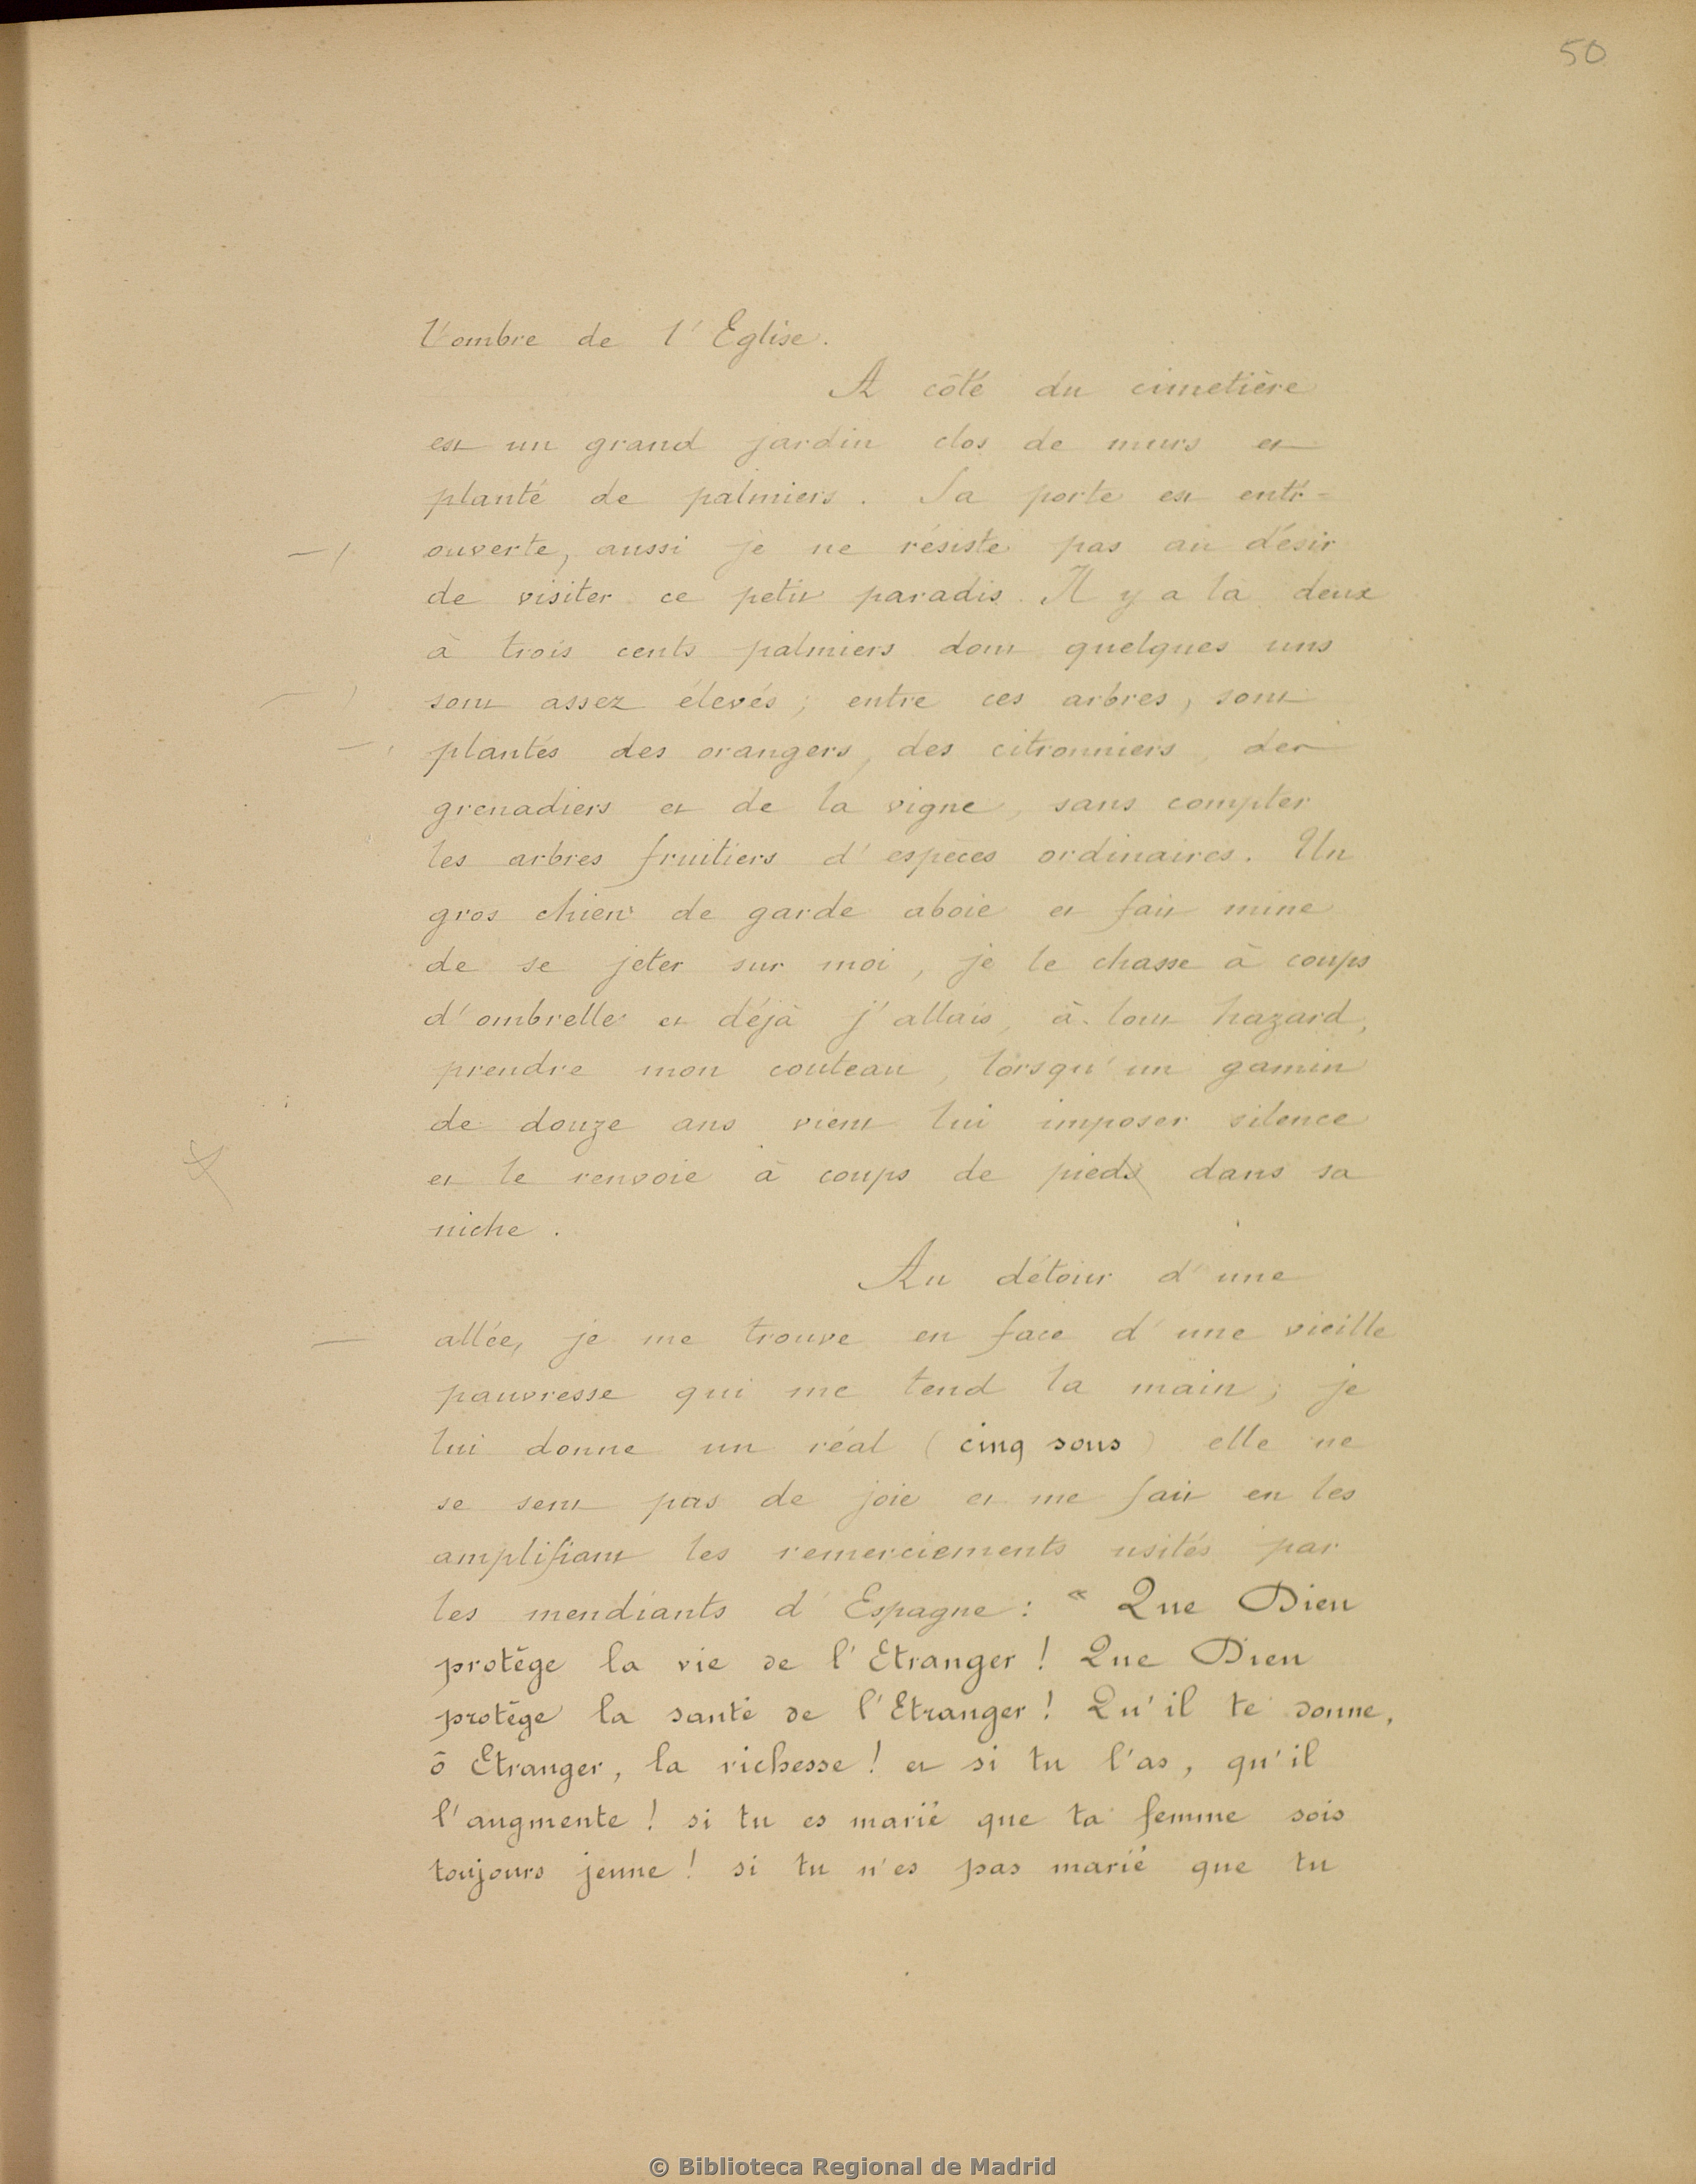 50
l'ombre de l'Eglise.
A côté du cimetière
est un grand jardin clos de murs et
planté de palmiers. Sa porte est entr=
ouverte, aussi je ne résiste pas au désir
de visiter ce petit paradis. Il y a là deux
à trois cents palmiers dont quelques uns
sont assez élevés ; entre ces arbres, sont
plantés des orangers, des citronniers, des
grenadiers et de la vigne, sans compter
les arbres fruitiers d'espèces ordinaires. Un
gros chien de garde aboie et fait mine
de se jeter sur moi, je le chasse à coups
d'ombrelle et déjà j'allais, à tout hazard,
prendre mon couteau, lorsqu'un gamin
de douze ans vient lui imposer silence
et le renvoie à coups de pieds dans sa
niche.
Au détour d'une
allée, je me trouve en face d'une vieille
pauvresse qui me tend la main ; je
lui donne un réal (cinq sous) elle ne
se sent pas de joie et me fait en les
amplifiant les remerciements usités par
les mendiants d'Espagne : « Que Dieu
protège la vie de l'Etranger ! Que Dieu
protège la santé de l'Etranger ! Qu'il te donne,
ô Etranger, la richesse ! et si tu l'as, qu'il
l'augmente ! si tu es marié que ta femme sois
toujours jeune ! si tu n'es pas marié que tu
© Biblioteca Regional de Madrid